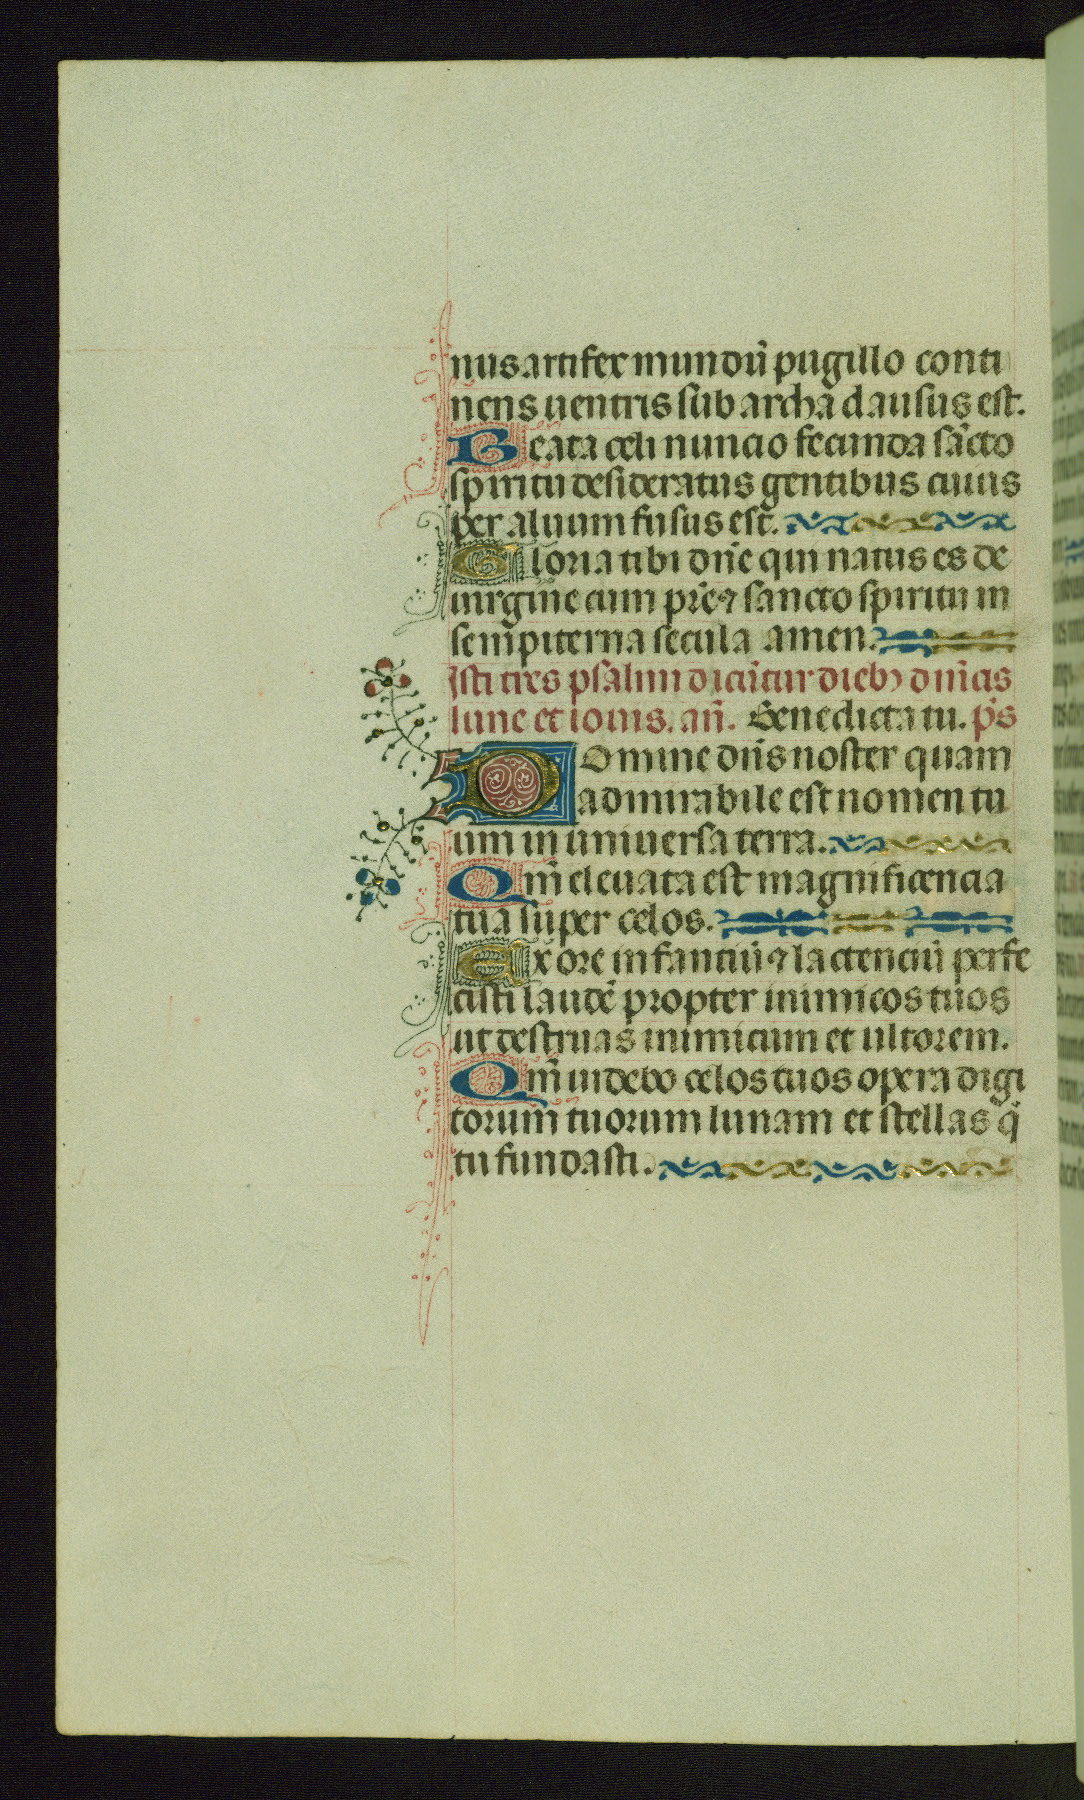 nus artifex mundu᷃ pugillo conti
nens uentris sub archa clausus est.
Beata celi nuncio fecunda sa᷃cto
spiritu desideratus gentibus cuius
per aluum fusus est.
Gloria tibi dn̄e qui natus es de
uirgine cum pr̄e ⁊ sancto spiritu in
sempiterna secula amen.
Isti tres psalmi dicu᷃tur dieb᷒ dn̄icis
lune et iouis. an̄. Benedicta tu. p̄s
Domine dn̄s noster quam
admirabile est nomen tu
um in uniuersa terra.
Qm̄ eleuata est magnificencia
tua super celos.
Ex ore infanciū ⁊ lactenciū perfe
cisti laudē propter inimicos tuos
ut destruas inimicum et ultorem.
Qm̄ uidebo celos tuos opera digi
torum tuorum lunam et stellas q̄
tu fundasti.